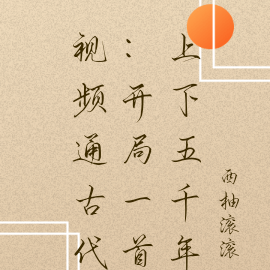 上下五千年
：开局一首
视频通古代
西柚滚滚